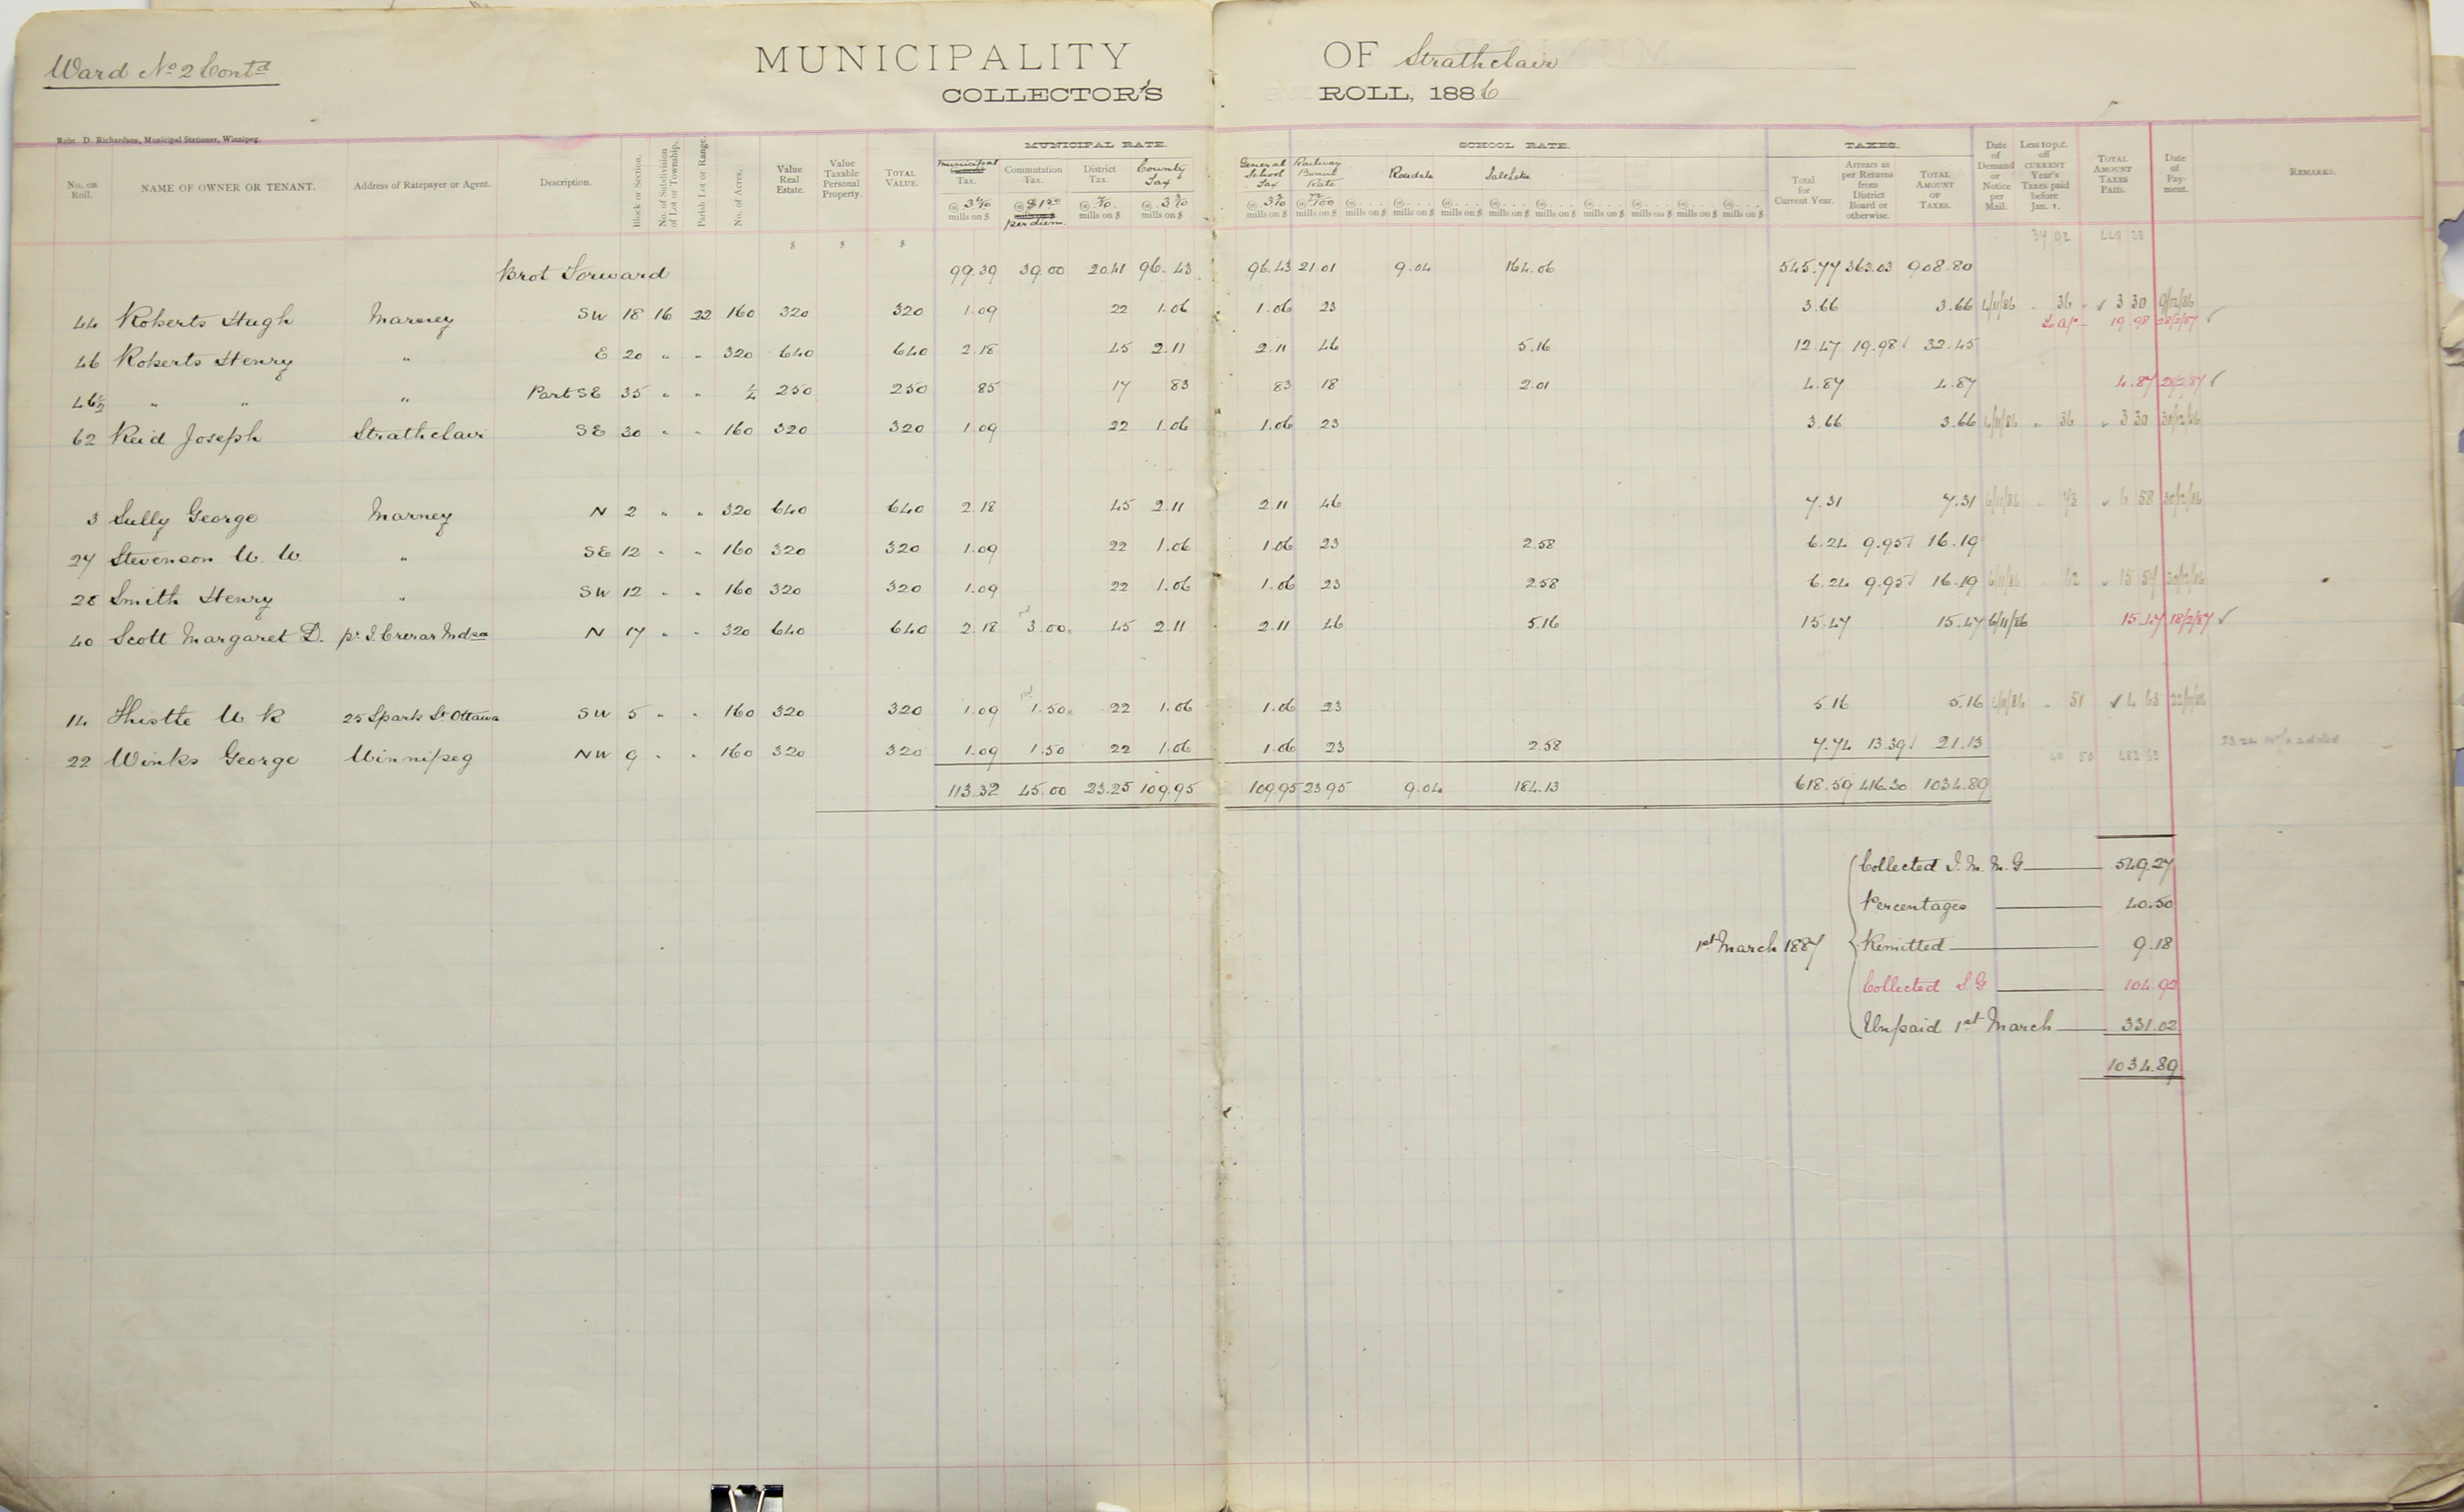 Ward No 2 Contd
MUNICIPALITY OF Strathclair
COLLECTOR'S ROLL, 1886
Robt. D. Richardson, Municipal Stationer, Winnipeg.
MUNICIPAL RATE. SCHOOL RATE. TAXES.
No. on Roll. NAME OF OWNER OR TENANT. Address of Ratepayer or Agent. Description. Block or Section. No. of Subdivision of Lot or Township. Parish Lot or Range. No. of Acres. Value Real Estate. Value Taxable Personal Property. TOTAL VALUE. Municipal Tax. Commutation Tax. District Tax. County Tax General School Tax Railway Bonus Rate Rosedale Salt Lake Total for Current Year. Arrears as per Returns from District Board or otherwise. TOTAL AMOUNT OF TAXES. Date of Demand or Notice per Mail. Less 10 p.c. off CURRENT Year's Taxes paid before Jan. 1. TOTAL AMOUNT TAXES PAID. Date of Payment. REMARKS.
@ 3 4/10 mills on $ @ $1.50 per diem. @ 7/10 mills on $ @ 3 3/10 mills on $ @ 3 3/10 mills on $ @ 72/100 mills on $ @ . . . . mills on $ @ . . . . mills on $ @ . . . . mills on $ @ . . . . mills on $ @ . . . . mills on $ @ . . . . mills on $ @ . . . . mills on $ @ . . . . mills on $ @ . . . . mills on $
$ $ $ 34 92
Brot Forward 99.39 39.00 20.41 96.43 96.43 21.01 9.04 164.06 545.77 363.03 908.80
44 Roberts Hugh Marney SW 18 16 22 160 320 320 1.09 22 1.06 1.06 23 3.66 3.66 6/11/86 36 ✓ 3 30 9/12/86
19.98 28/2/87 ✓
46 Roberts Henry " E 20 " " 320 640 640 2.18 45 2.11 2.11 46 5.16 12.47 19.98 32.45
46½ " " " Part SE 35 " " ¼ 250 250 85 17 83 83 18 2.01 4.87 4.87 4.87 28/2/87 ✓
62 Reid Joseph Strathclair SE 30 " " 160 320 320 1.09 22 1.06 1.06 23 3.66 3.66 6/11/86 " 36 " 3 30 30/12/86
3 Sully George Marney N 2 " " 320 640 640 2.18 45 2.11 2.11 46 7.31 7.31 6/11/86 " 73 " 6 58 30/12/86
27 Stevenson W. W. " SE 12 " " 160 320 320 1.09 22 1.06 1.06 23 2.58 6.24 9.95 16.19
28 Smith Henry " SW 12 " " 160 320 320 1.09 22 1.06 1.06 23 2.58 6.24 9.95 16.19 6/11/86 62 " 15 57 30/12/86
40 Scott Margaret D. pr. J. Crerar Mndsa N 17 " " 320 640 640 2.18 3.00 45 2.11 2.11 46 5.16 15.47 15.47 6/11/86 15.47 18/2/87 ✓
14 Thistle W R 25 Sparks St Ottawa SW 5 " " 160 320 320 1.09 1.50 22 1.06 1.06 23 5.16 5.16 6/11/86 " 51 ✓ 4 65
22 Winks George Winnipeg NW 9 " " 160 320 320 1.09 1.50 22 1.06 1.06 23 2.58 7.74 13.39 21.13
40 50
113.32 45.00 23.25 109.95 109.95 23.95 9.04 184.13 618.59 416.30 1034.89
Collected J. M. M. G 549.27
Percentages 40.50
1st March 1887 Remitted 9.18
Collected S G 104.92
Unpaid 1st March 331.02
1034.89